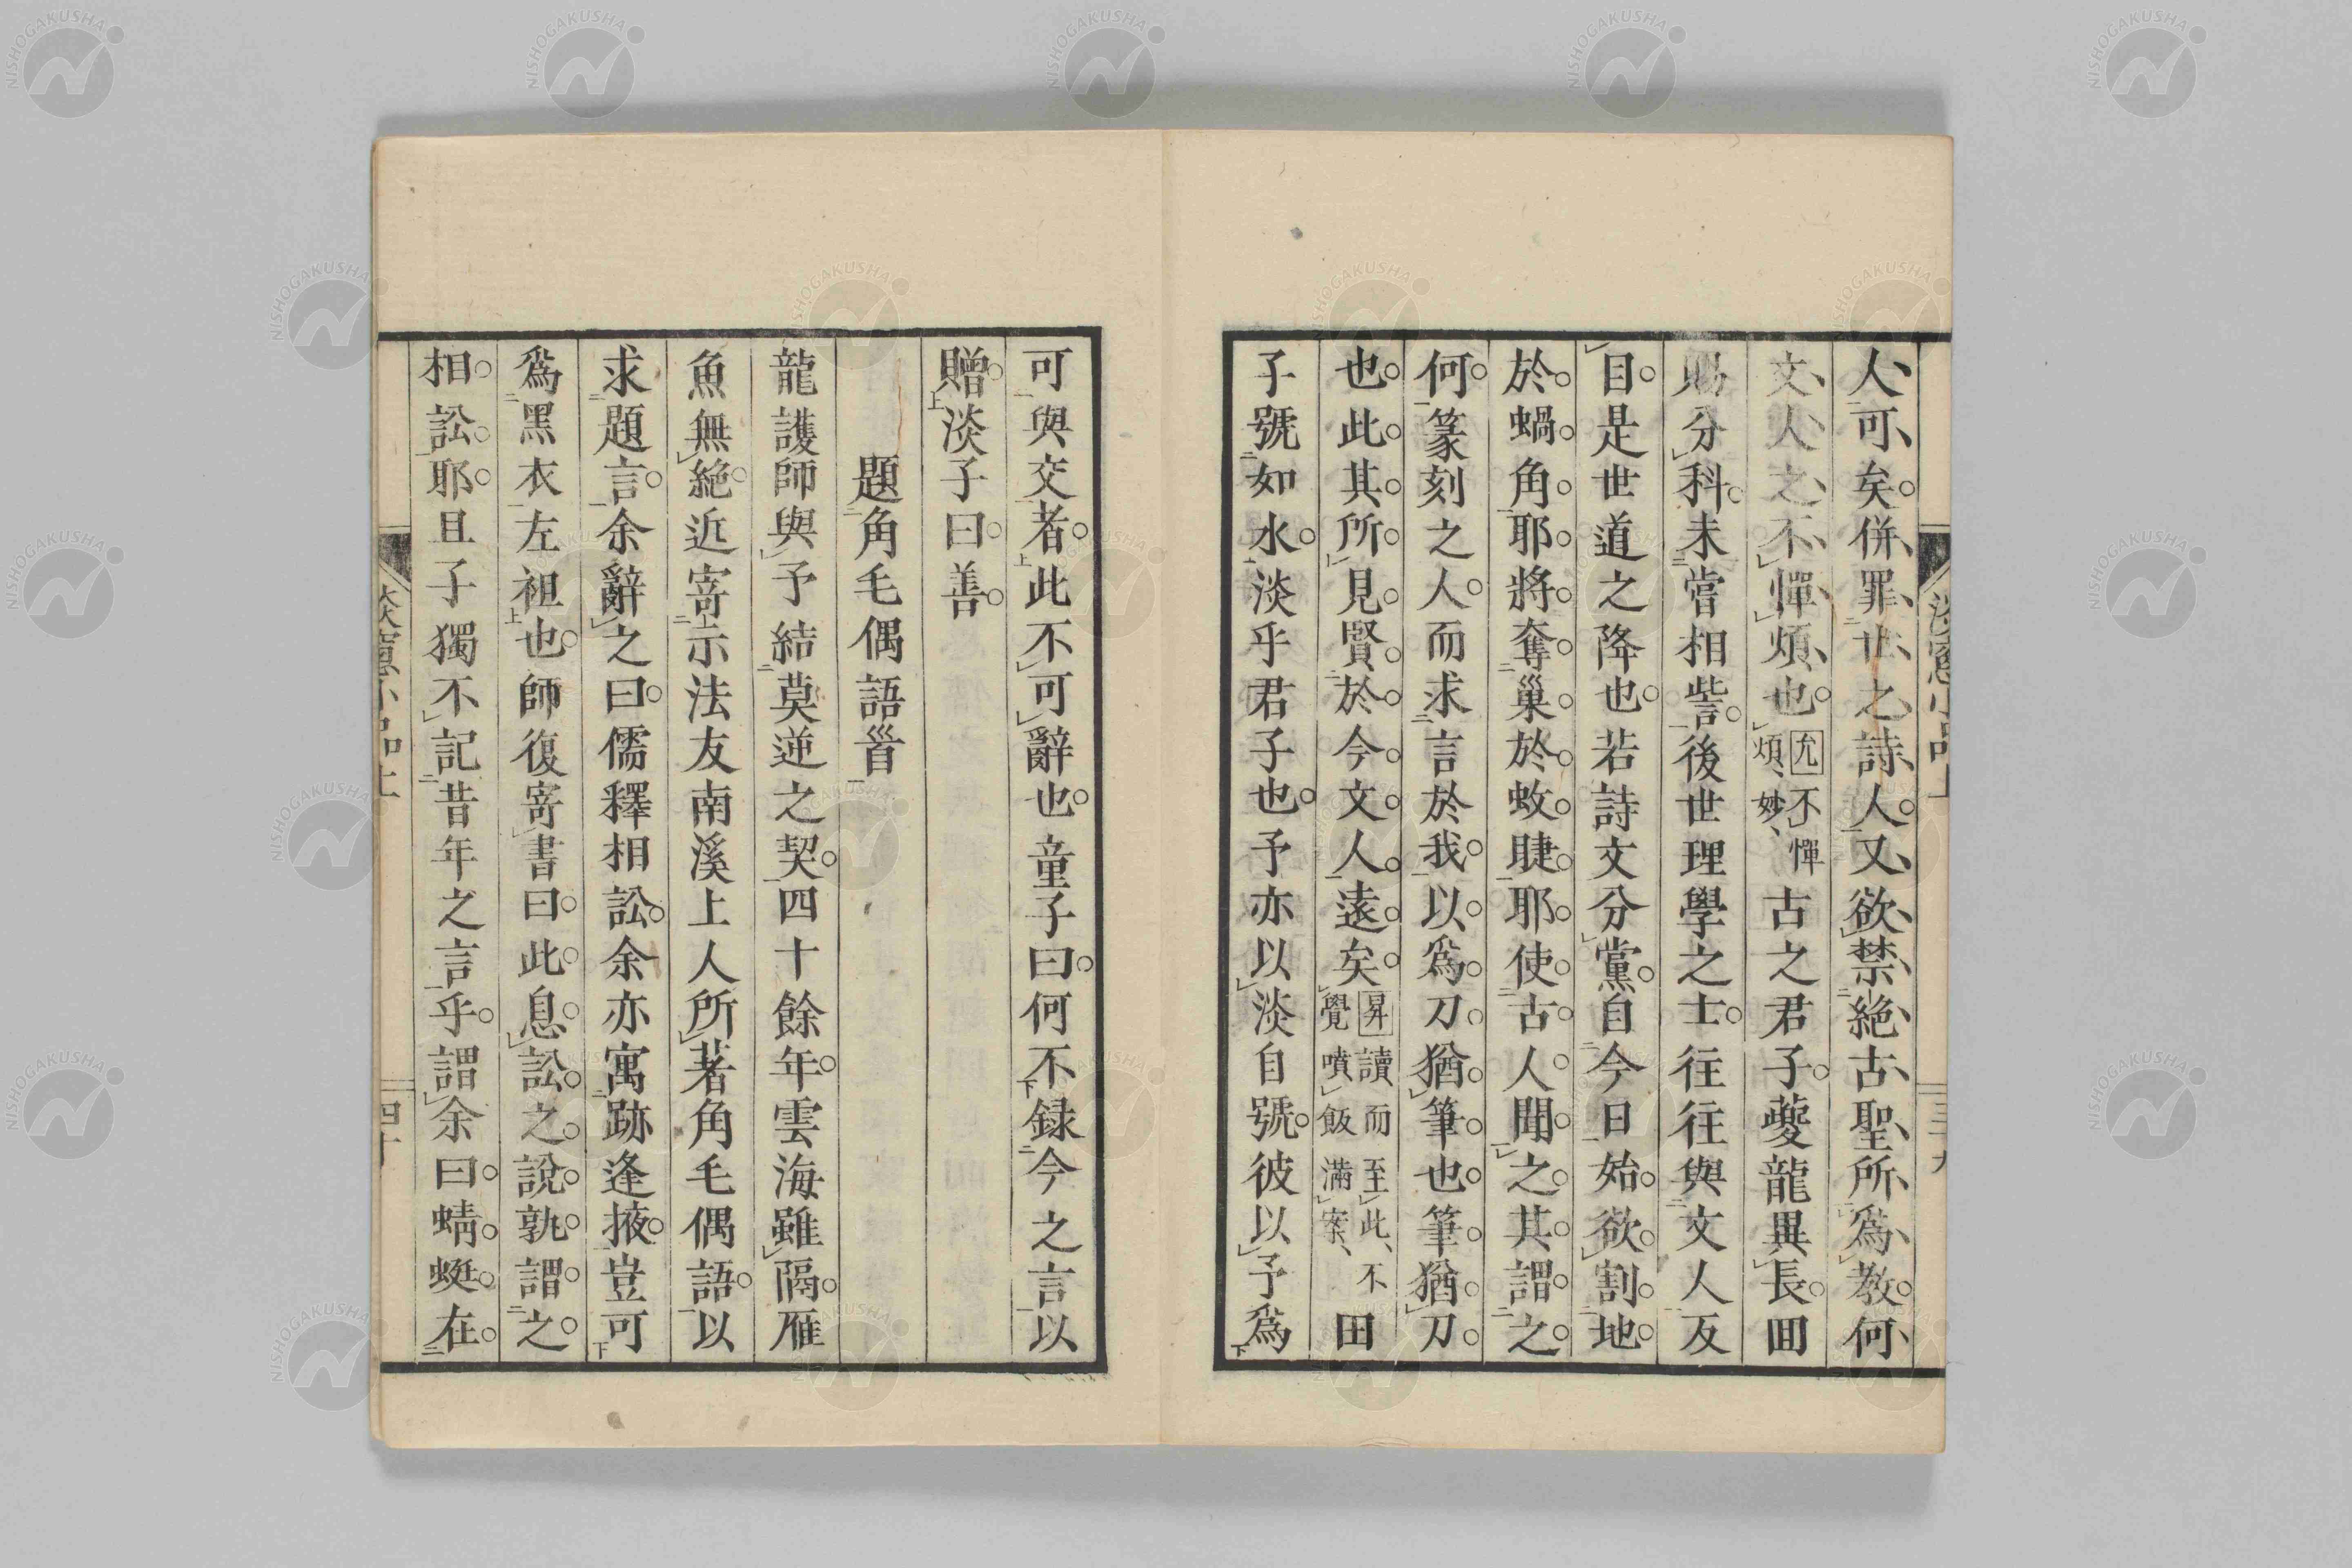 人可矣併罪世之詩人又欲禁絕古聖所爲教何
文人之不憚煩也 允不憚煩妙 古之君子夔龍異長回
賜分科未嘗相訾後世理學之士往往與文人反
目是世道之降也若詩文分黨自今日始欲割地
於蝸角耶將奪巢於蚊睫耶使古人聞之其謂之
何篆刻之人而求言於我以爲刀猶筆也筆猶刀
也此其所見賢於今文人遠矣 昇讀而至此不覺噴飯滿案 田
子號如水淡乎君子也予亦以淡自號彼以予爲
淡窻小品上
三十九
可與交者此不可辭也童子曰何不録今之言以
贈淡子曰善
題角毛偶語首
龍護師與予結莫逆之契四十餘年雲海雖隔雁
魚無絕近寄示法友南溪上人所著角毛偶語以
求題言余辭之曰儒釋相訟余亦寓跡逢掖豈可
爲黑衣左袒也師復寄書曰此息訟之說孰謂之
相訟耶且子獨不記昔年之言乎謂余曰蜻蜓在
淡窻小品上
四十
NISHOGAKUSHA